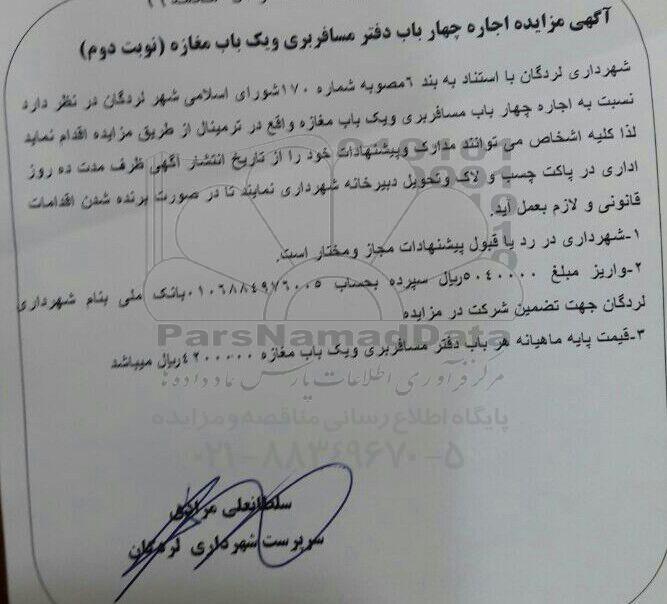 آگهی مزایده اجاره چهار باب دفتر مسافربری ویک باب مغازه (نوبت دوم)
شهرداری لردگان با استناد به بند ٦مصوبه شماره ۱۷۰شورای اسلامی شهر لردگان در نظر دارد
نسبت به اجاره چهار باب مسافربری ویک باب مغازه واقع در ترمینال از طریق مزایده اقدام نماید
لذا کلیه اشخاص می توانند مدارک وپیشنهادات خود را از تاریخ انتشار آگهی ظرف مدت ده روز
اداری در پاکت چسب و لاک وتحویل دبیرخانه شهرداری نمایند تا در صورت برنده شدن اقدامات
قانونی و لازم بعمل آید.
۱-شهرداری در رد یا قبول پیشنهادات مجاز ومختار است.
۲-واریز مبلغ ۵۰۴۰۰۰۰ریال سپرده بحساب ۰۱۰۶۸۸۴۹۷۶۰۰۵بانک ملی بنام شهرداری
لردگان جهت تضمین شرکت در مزایده
ParsNamadData
۳-قیمت پایه ماهیانه هر باب دفتر مسافربری ویک باب مغازه ۴۲۰۰۰۰۰ریال میباشد
مرکز فرآوری اطلاعات پارس نماد داده ها
پایگاه اطلاع رسانی مناقصه و مزایده
۰۲۱-۸۸۳۴۹۶۷۰-۵
سلطانعلی مرادی
سرپرست شهرداری لردگان